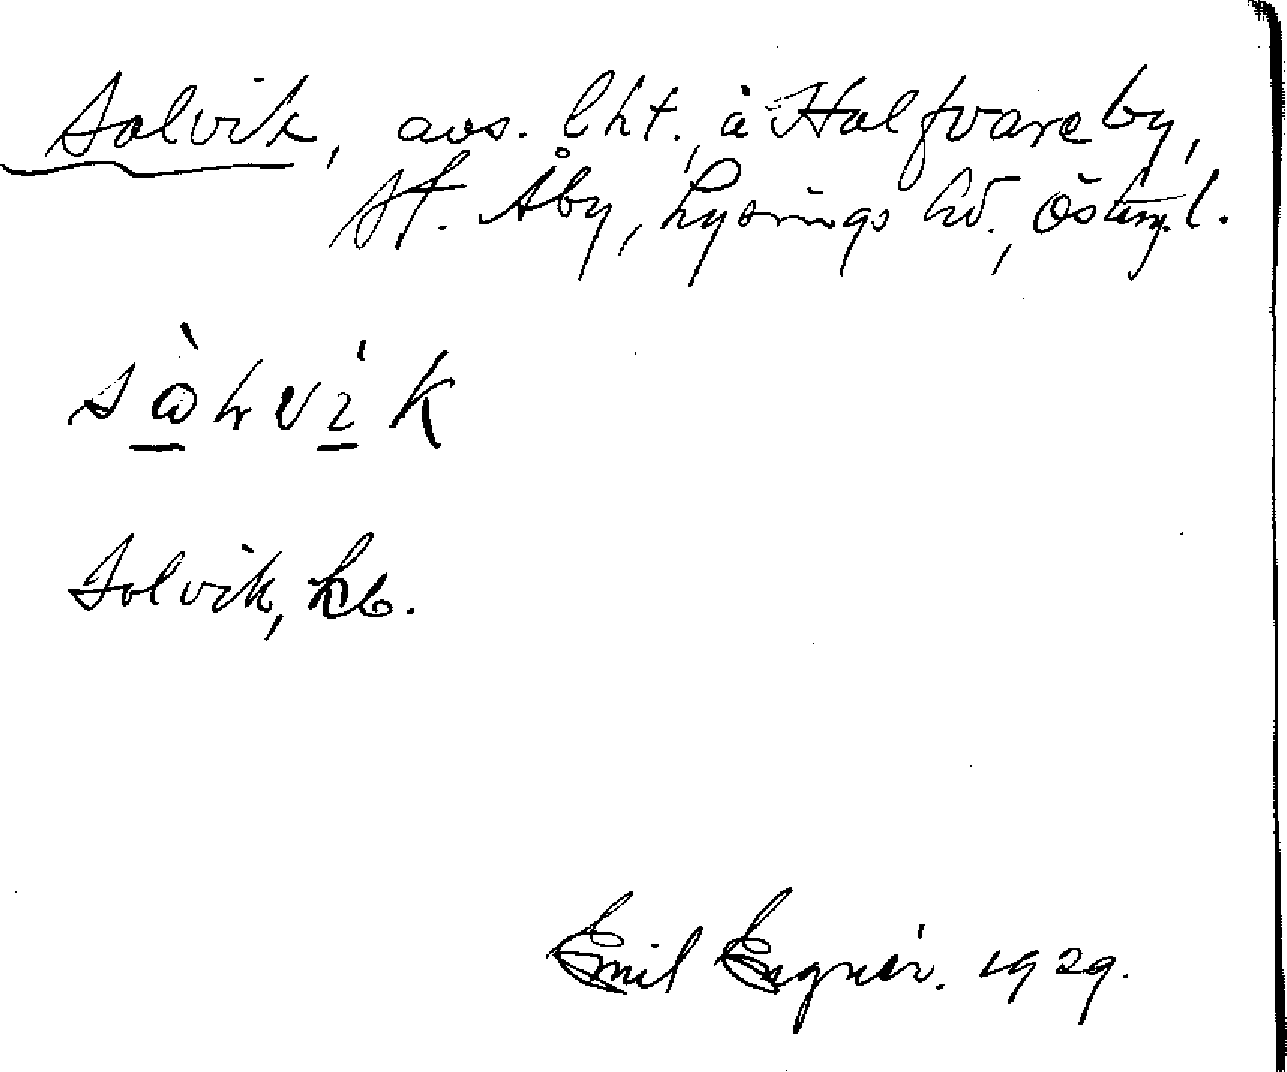 Solvik, avs. lht. å Halfvareby,
St. Åby, Lysings hd., Östergl.
Solvik, kb.
Emil Egnér. 1929.